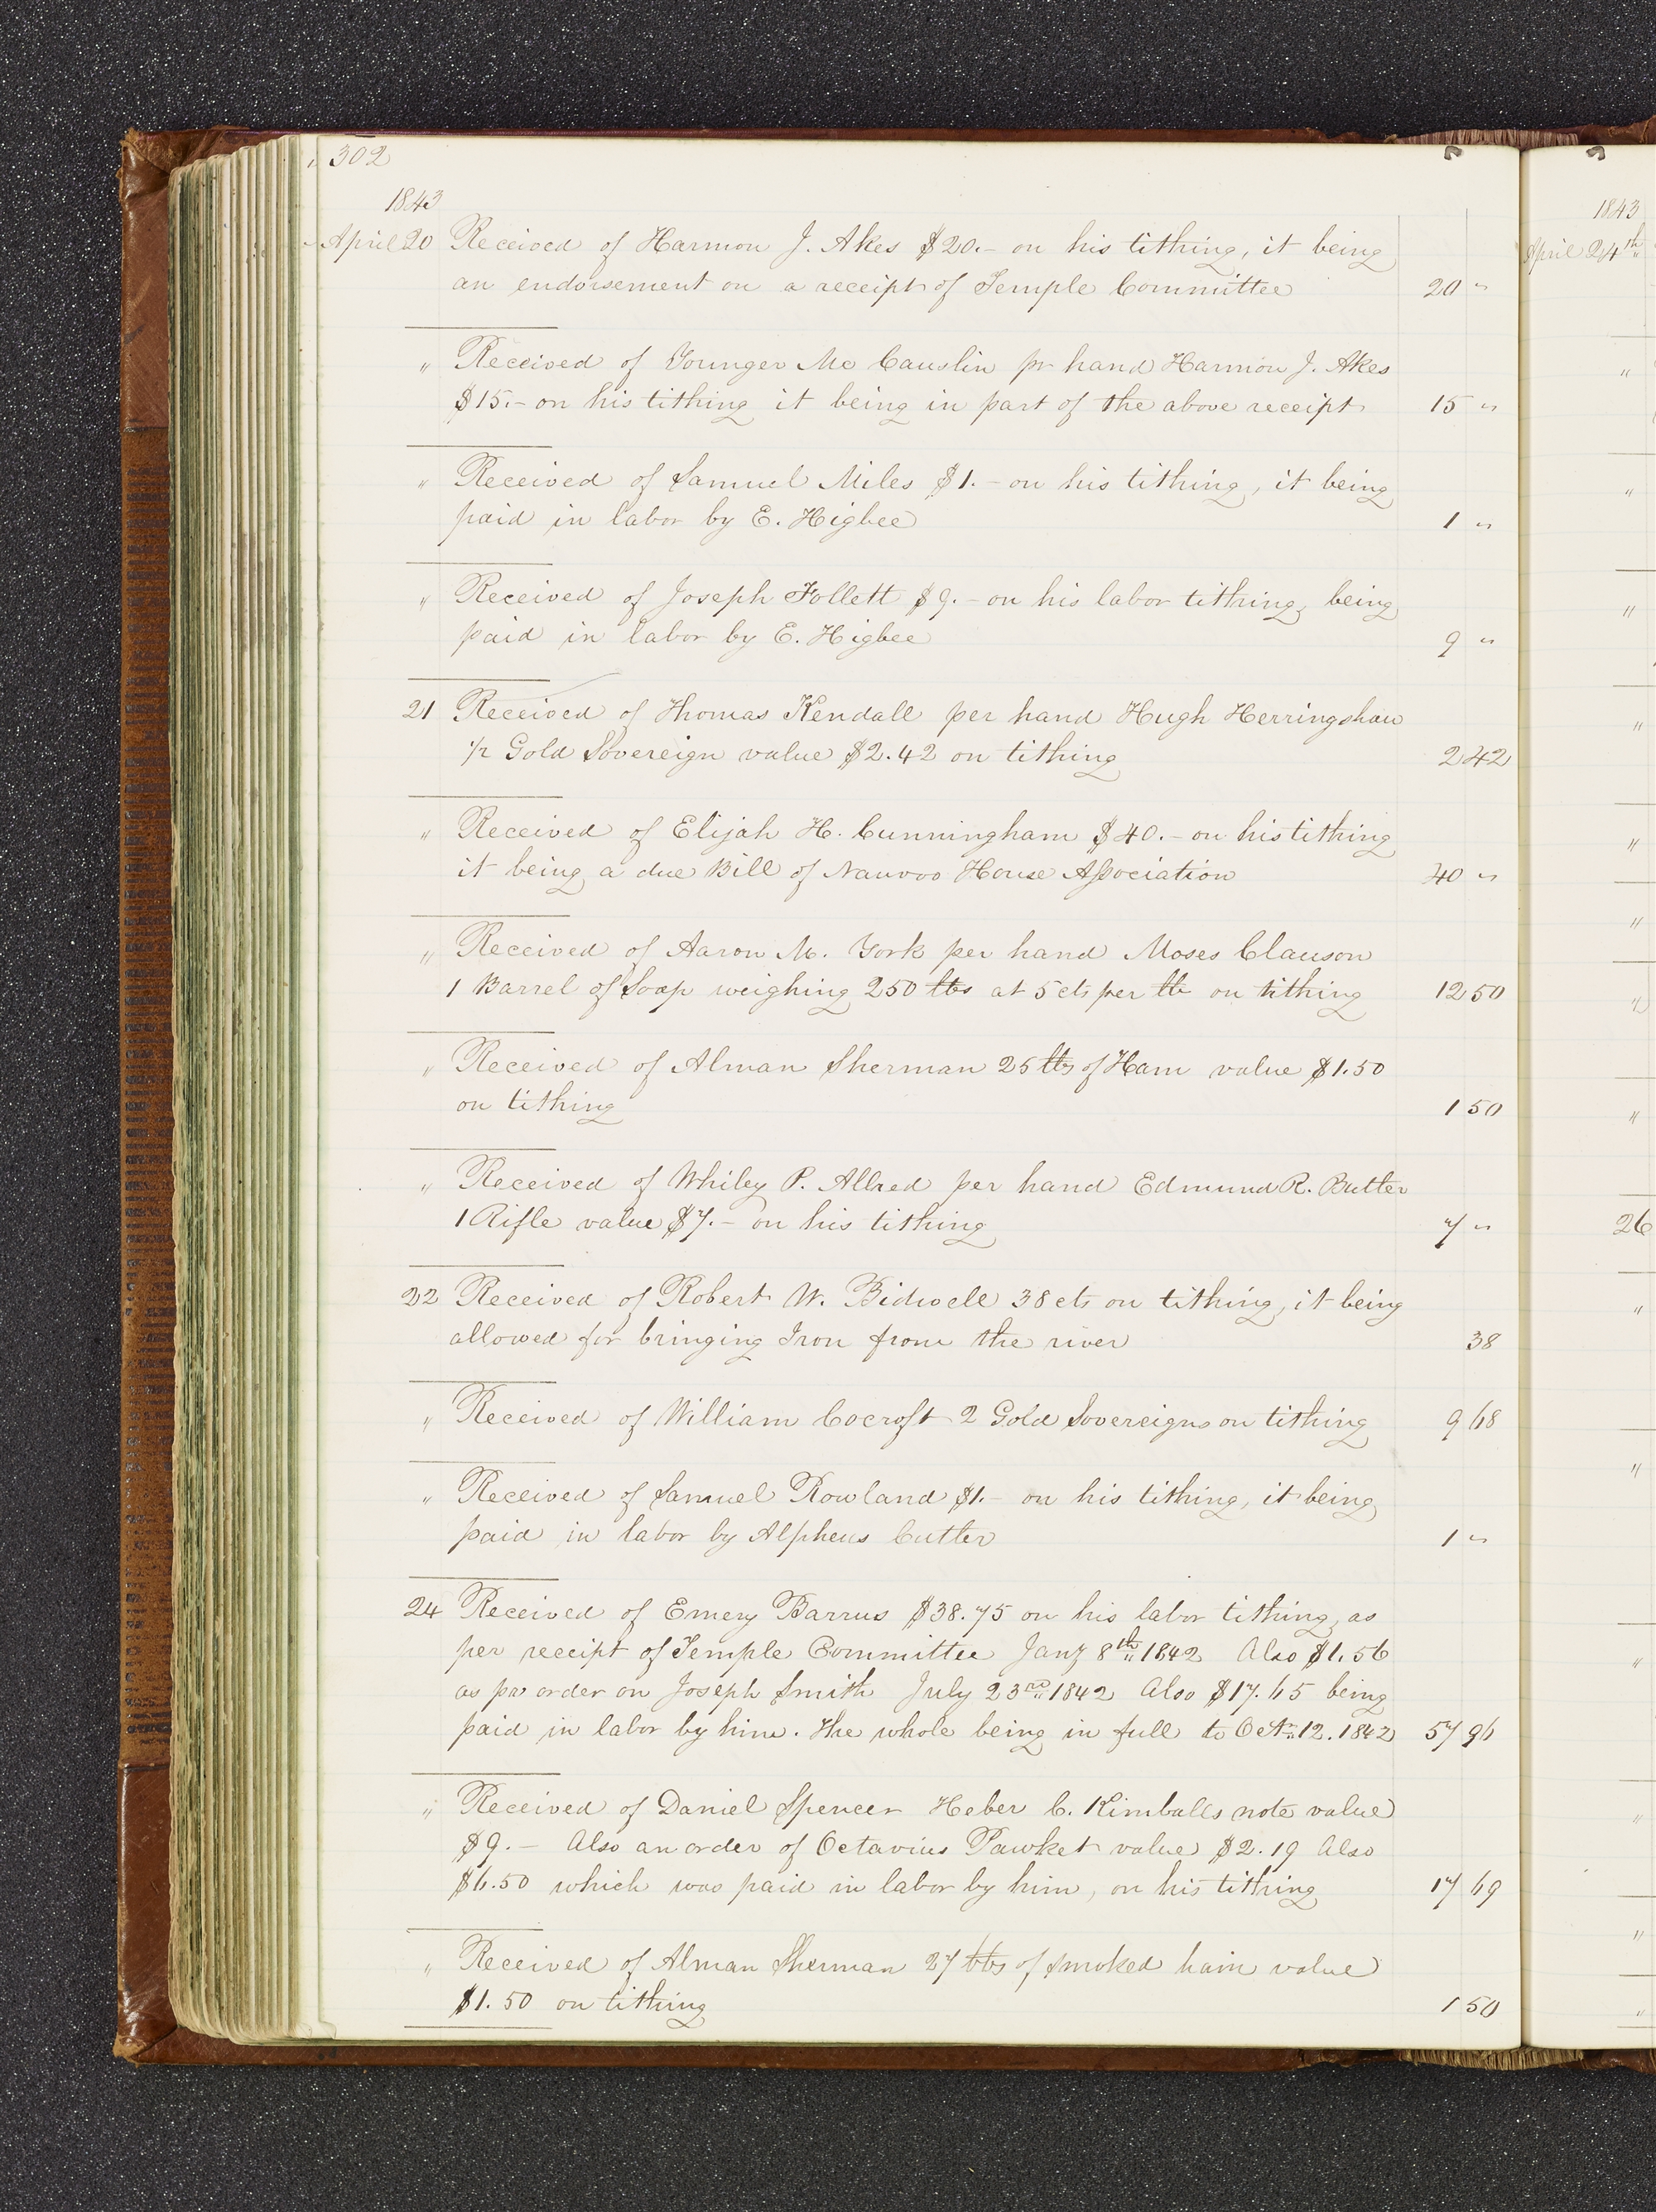 302
1843
April 20 Received of Harmon J. Akes $20.– on his tithing, it being
an endorsement on a receipt of Temple Committee 20 "
" Received of Younger Mc Causlin pr hand Harmon J. Akes
$15.– on his tithing it being in part of the above receipt 15 "
" Received of Samuel Miles $1.– on his tithing, it being
paid in labor by E. Higbee 1 "
" Received of Joseph Follett $9.– on his labor tithing, being
paid in labor by E. Higbee 9 "
21 Received of Thomas Kendall per hand Hugh Herringshaw
1/2 Gold Sovereign value $2.42 on tithing 2 42
" Received of Elijah H. Cunningham $40.– on his tithing
it being a due Bill of Nauvoo House Association 40 "
" Received of Aaron M. York per hand Moses Clauson
1 Barrel of Soap weighing 250 lbs at 5 cts per lb on tithing 12 50
" Received of Alman Sherman 25 lbs of Ham value $1.50
on tithing 1 50
" Received of Whiley P. Allred per hand Edmund R. Butler
1 Rifle value $7.– on his tithing 7 "
22 Received of Robert W. Bidwell 38 cts on tithing, it being
allowed for bringing Iron from the river 38
" Received of William Cocroft 2 Gold Sovereigns on tithing 9 68
" Received of Samuel Rowland $1.– on his tithing, it being
paid in labor by Alpheus Cutler 1 "
24 Received of Emery Barrus $38.75 on his labor tithing, as
per receipt of Temple Committee Jany 8th 1842 Also $1.56
as pr order on Joseph Smith July 23rd 1842 Also $17.65 being
paid in labor by him. The whole being in full to Oct. 12. 1842 57 96
" Received of Daniel Spencer Heber C. Kimballs note value
$9.– Also an order of Octavius Pawket value $2.19 Also
$6.50 which was paid in labor by him, on his tithing 17 69
" Received of Alman Sherman 27 lbs of smoked ham value
$1.50 on tithing 1 50
1843
April 24th
"
"
"
"
"
"
"
"
26
"
"
"
"
"
"